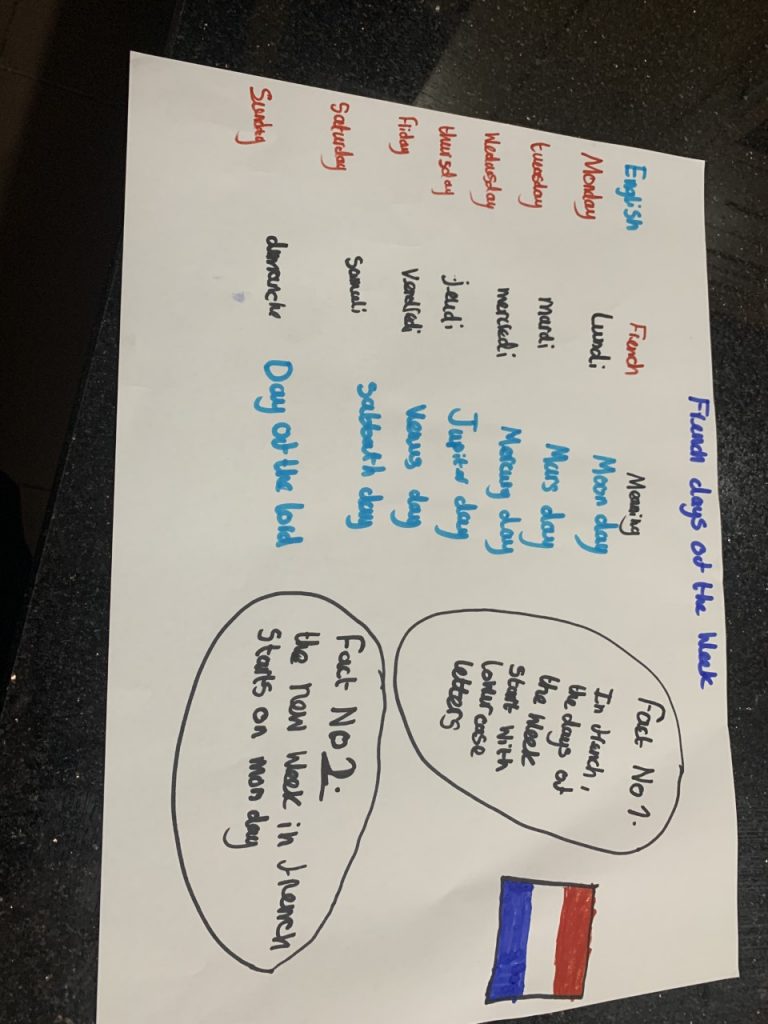 French days of the Week
English French Meaning
Monday Lundi Moon day
tuesday mardi Mars day
Wednesday mercredi Mercury day
thursday jeudi Jupiter day
Friday Vendredi Venus day
Saturday Samedi Sabbath day
Sunday dimanche Day of the lord
Fact No 1.
In french,
the days of
the Week
start with
lowercase
letters
Fact No 2.
the new week in french
Starts on monday